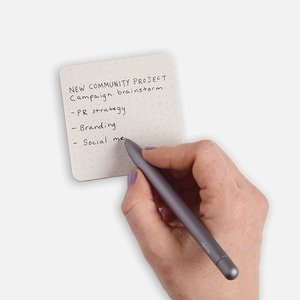 NEW COMMUNITY PROJECT
Campaign brainstorm
- PR strategy
- Branding
- Social me